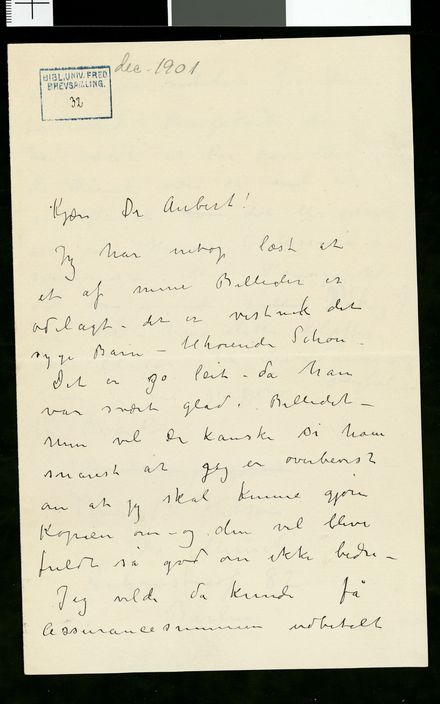 dec. 1901
BIBL. UNIV. FRED.
BREVSAMLING.
32
Kjære Dr Aubert!
Jeg har netop læst at
et af mine Billeder er
ødelagt – det er vistnok det
syge Barn – tilhørende Schou –
Det er jo leit – da han
var svært glad i Billedet –
men vil De kanske si ham
snarest at jeg er overbevist
om at jeg skal kunne gjøre
Kopien om – og den vil blive
fuldt så god om ikke bedre –
Jeg vilde da kunde få
Assurancesummen udbetalt